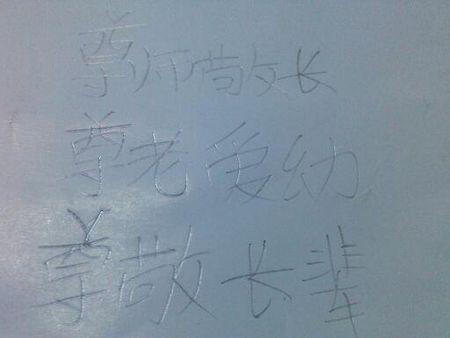 尊师敬长
尊老爱幼
尊敬长辈